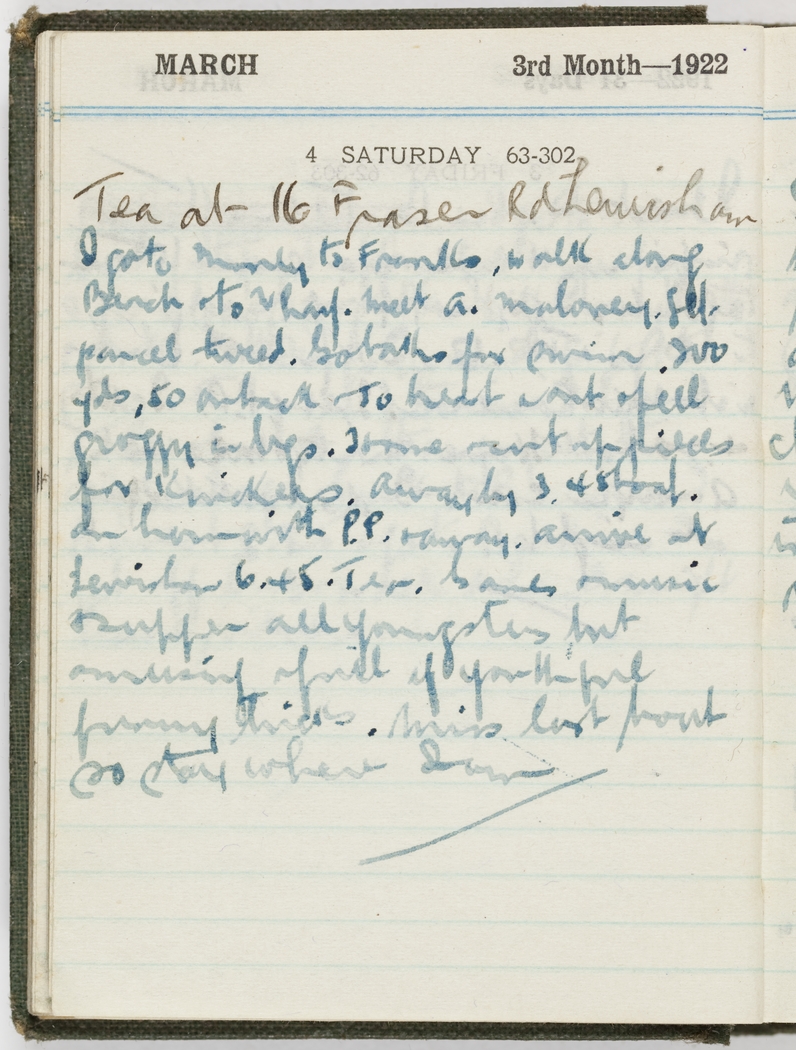 MARCH 3rd Month—1922
4 SATURDAY 63-302
Tea at 16 Fraser Rd Lewisham
I go to Manly to Franks, walk along
Beach & to Wharf. meet A. Maloney. get
parcel tweed. Go baths for swim. 200
yds, 50 on back & to treat & feel
groggy in legs. Home & cut up pieces
for Knickers. away by 3.45 boat.
P.P. arrive at
Lewisham 6.45. Tea. Games & music
& supper all youngsters but
amusing & full of youthful
funny tricks. Miss last boat
so stay where I am